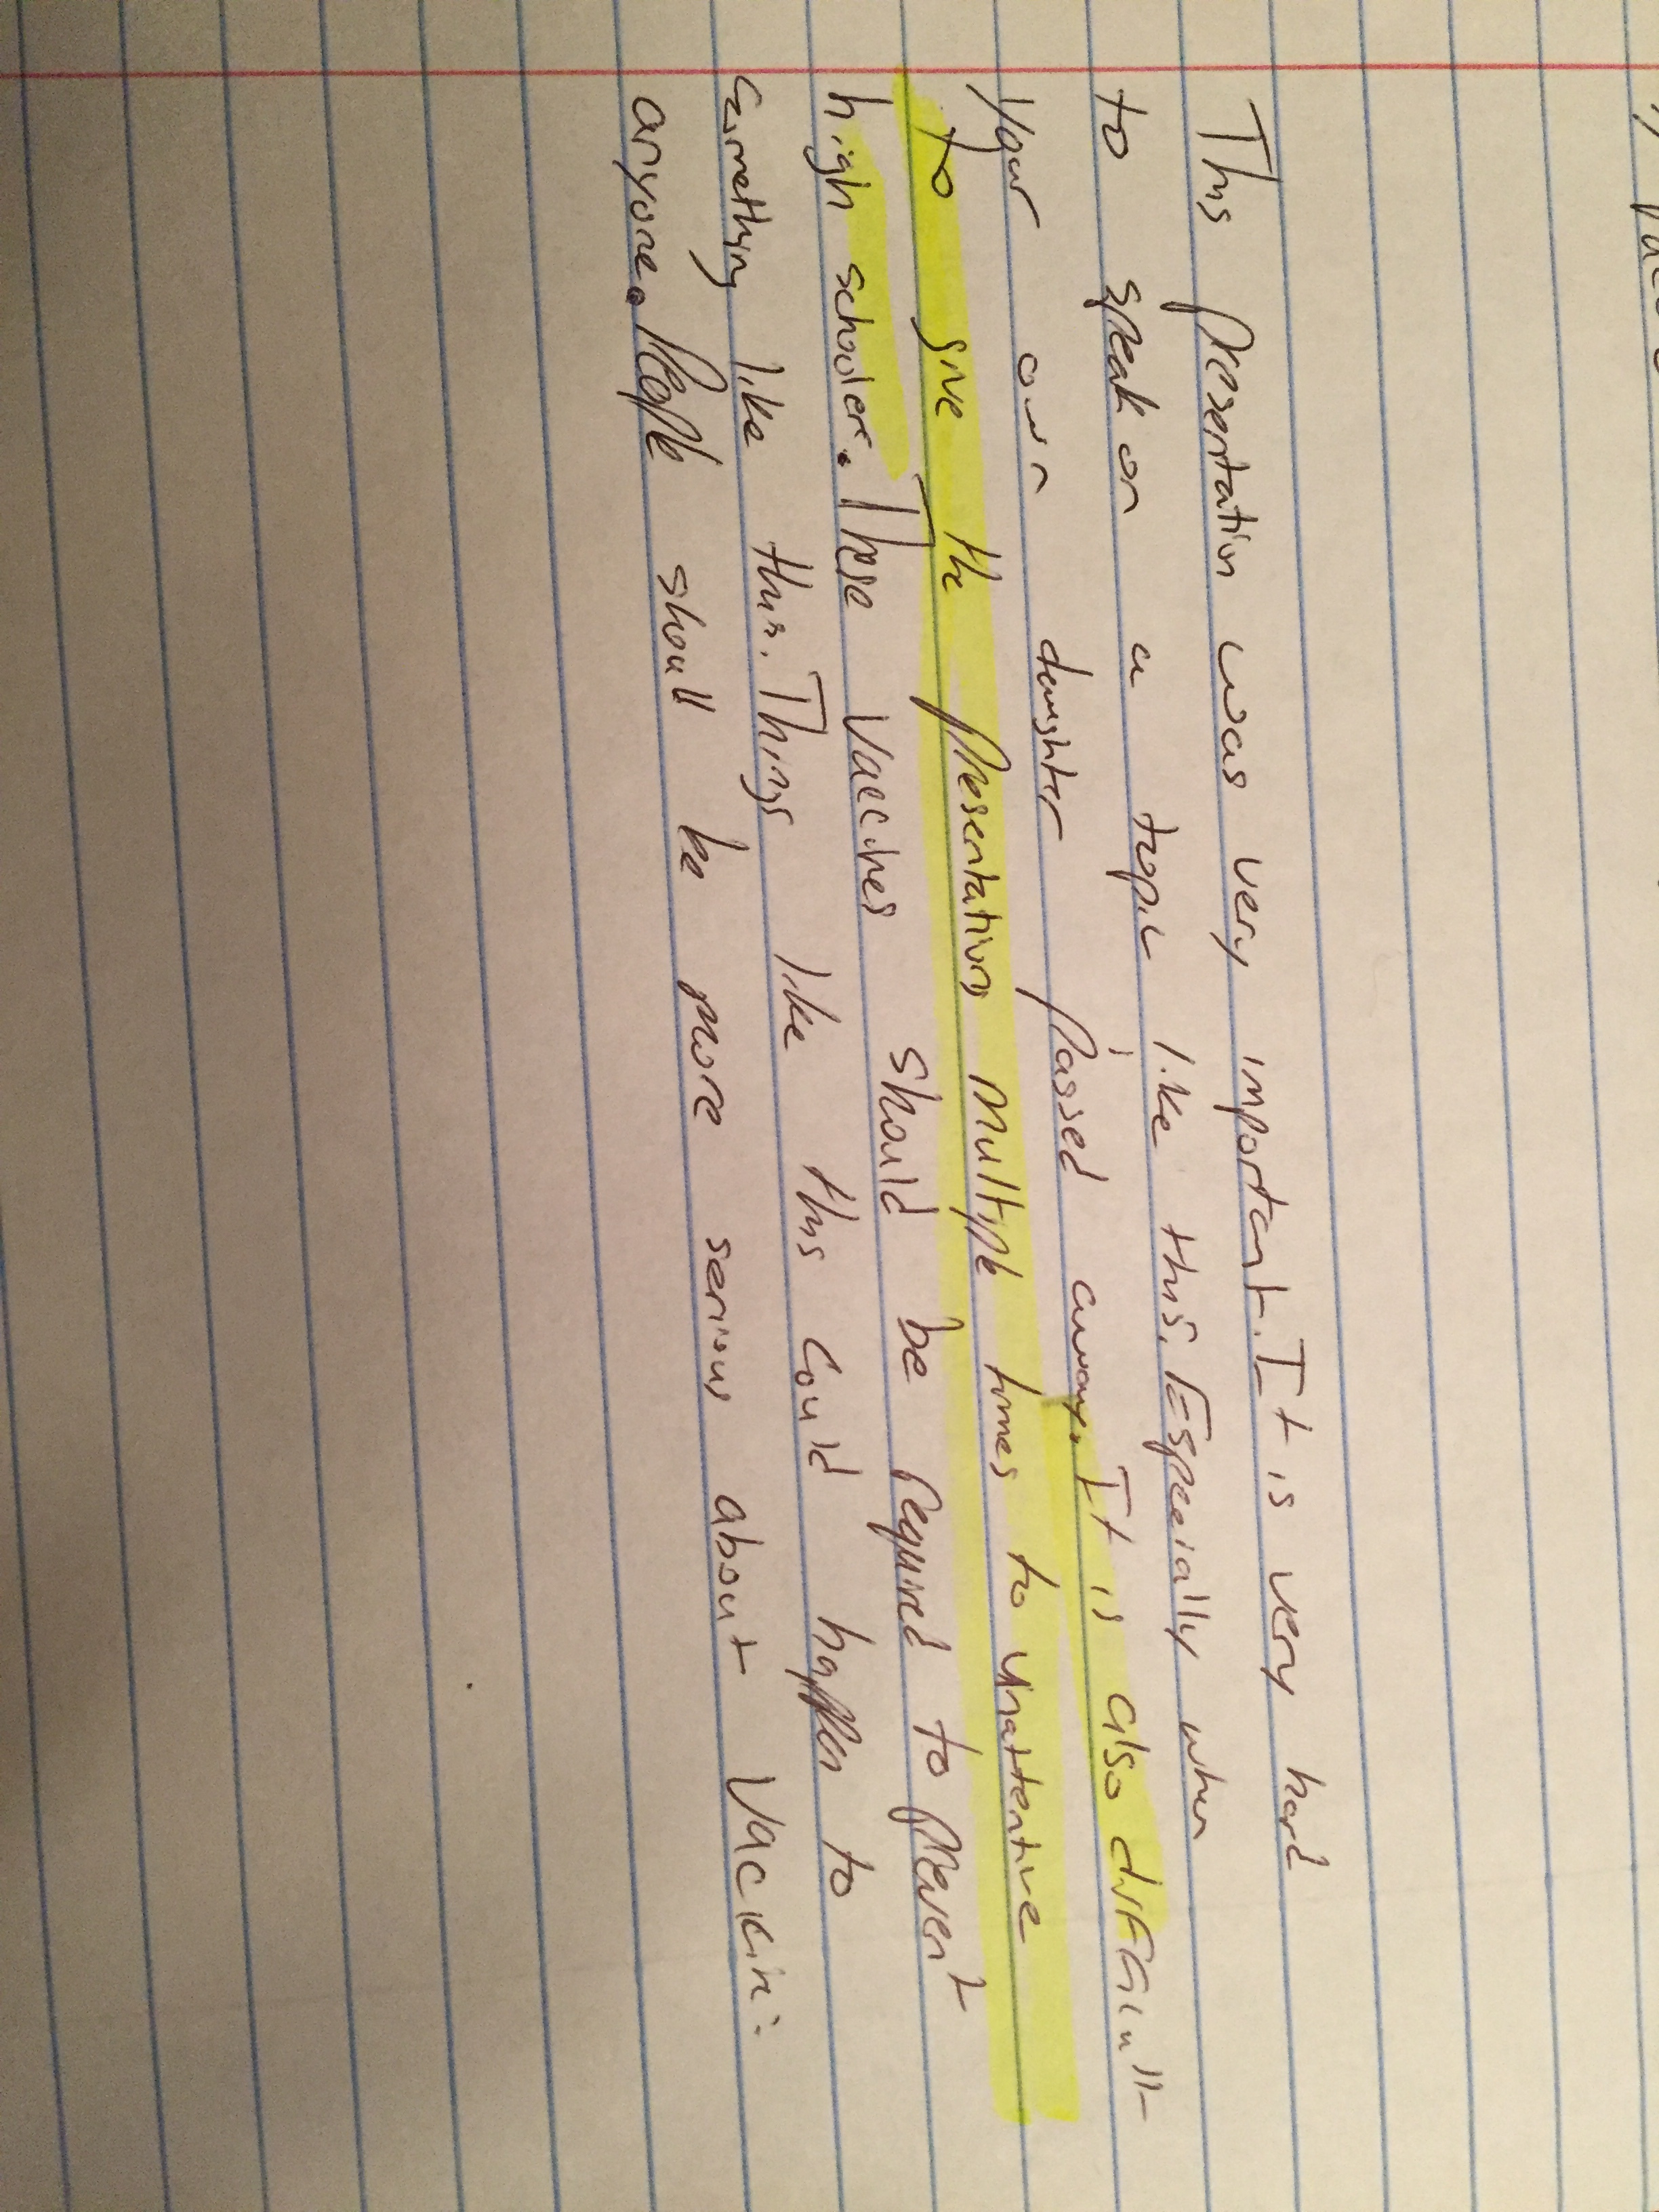 This presentation was very important. It is very hard
to speak on a topic like this. Especially when
your own daughter passed away. It is also difficult
to give the presentation multiple times to unattentive
high schoolers. These vaccines should be required to prevent
something like this. Things like this could happen to
anyone. People should be more serious about